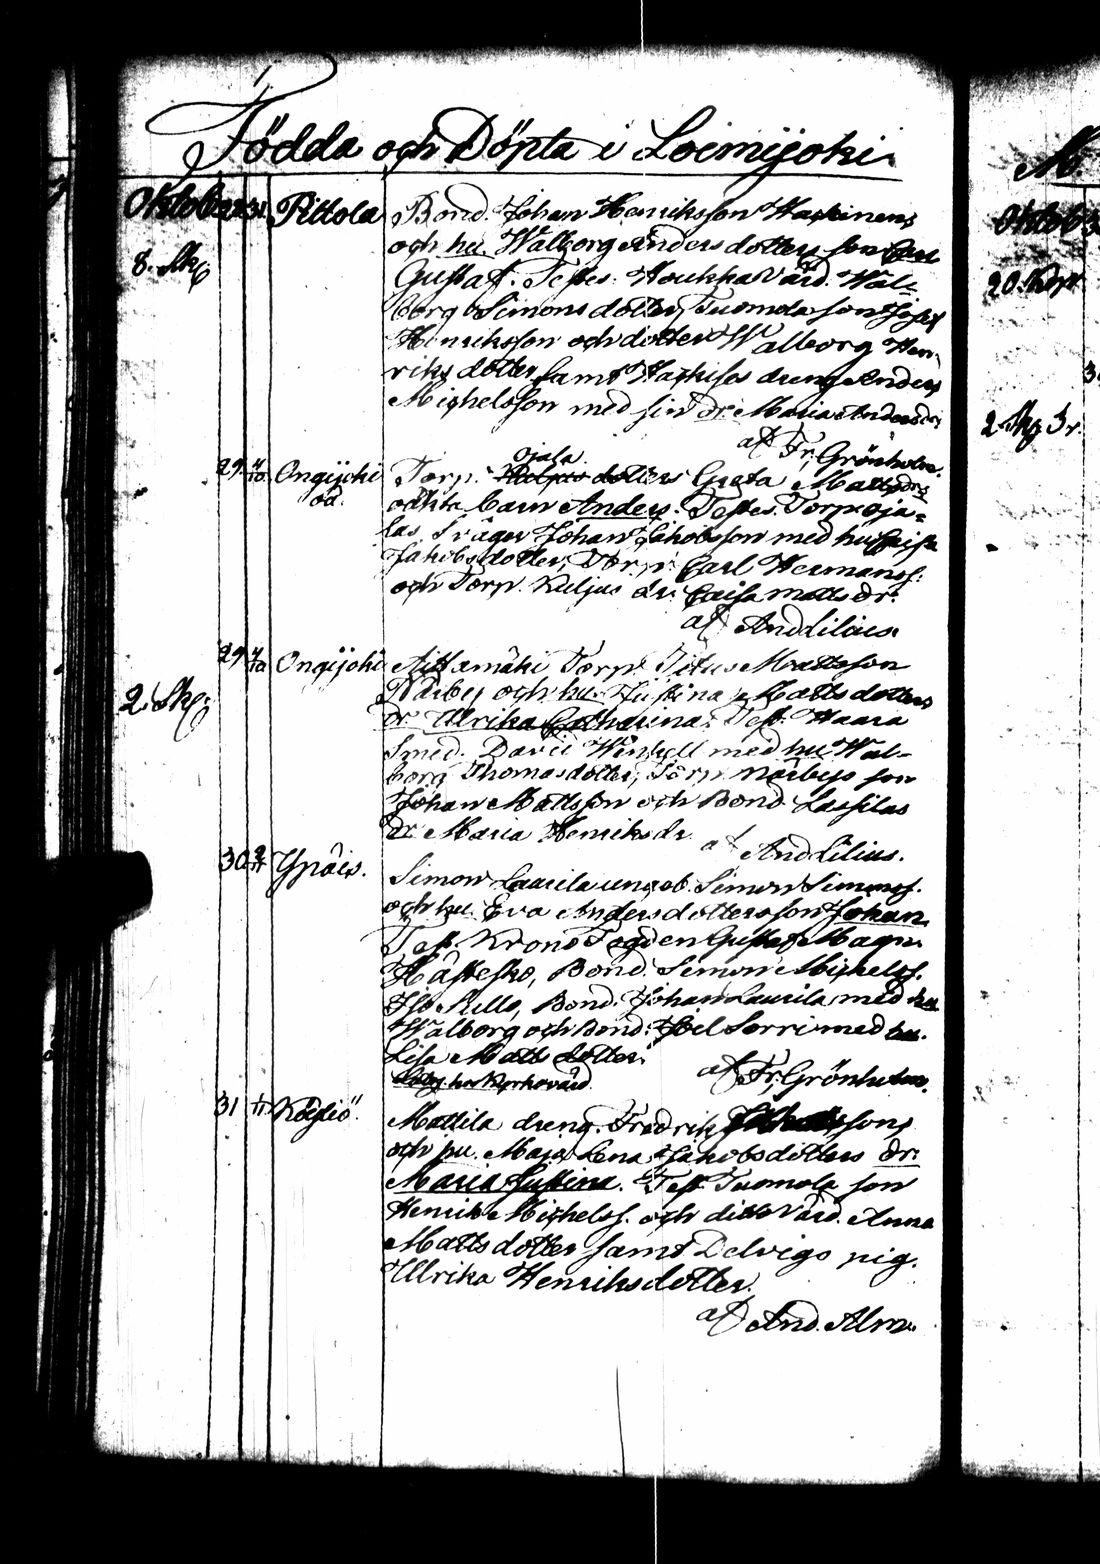 Födda och Döpta i Loimijoki.
Oktob. 31 Pittola Bond. Johan Henriksson
och hu. Walborg Andersdotters son Carl
8. Sk.
Gustaf. Testes: Woukka Värd. Wal-
borg Simonsdotter, Tuomola son Josef
Henriksson och dotter Walborg Hen-
riksdotter, samt dreng Anders
Michelsson med sin dr. Maria Andersdr.
af Fr. Grönholm.
ojala
29. Ongijoki Torp. dotters Greta Mattsdrs
oä. oäkta barn Anders. Testes. Torp oja-
las Svåger Johan Jakobsson med hu Caisa
Jakobsdotter, Torp. Carl Hermanss.
och Torp. Kuljus dr. Caisa Mattsdr.
af And Lilius.
29 Ongijoki Torp. Titus Mattsson
2. Sk. Närby och hu. Justina Mattsdotters
dr. Ulrika Catharina. Test. Haara
Smed. David med hu Wal-
borg Thomasdotter, Torp. Närbys son
Johan Mattsson och Bond Lassilas
dr. Maria Henriksdr.
af And Lilius.
30 Ypäis. Simon Laurila Simon Simonss.
och hu. Eva Andersdotters son Johan
Test. Krono Fogden Gustaf Magn.
Hästesko, Bond. Simon Michelss.
Bond. Johan Laurila med hu
Walborg och Bond. Joel Sorri med hu.
Lisa Matts dotter.
af Fr. Grönholm.
31 Mattila dreng. Fredrik
och hu. Maja Lena Jakobsdotters dr.
Maria Justina. Test. Tuomola son
Henrik Michelss. och ditto Värd. Anna
Mattsdotter samt Delvigs pig.
Ulrika Henriksdotter.
af And. Alm.
Oktob.
20. Kop
2 Sk Sr.